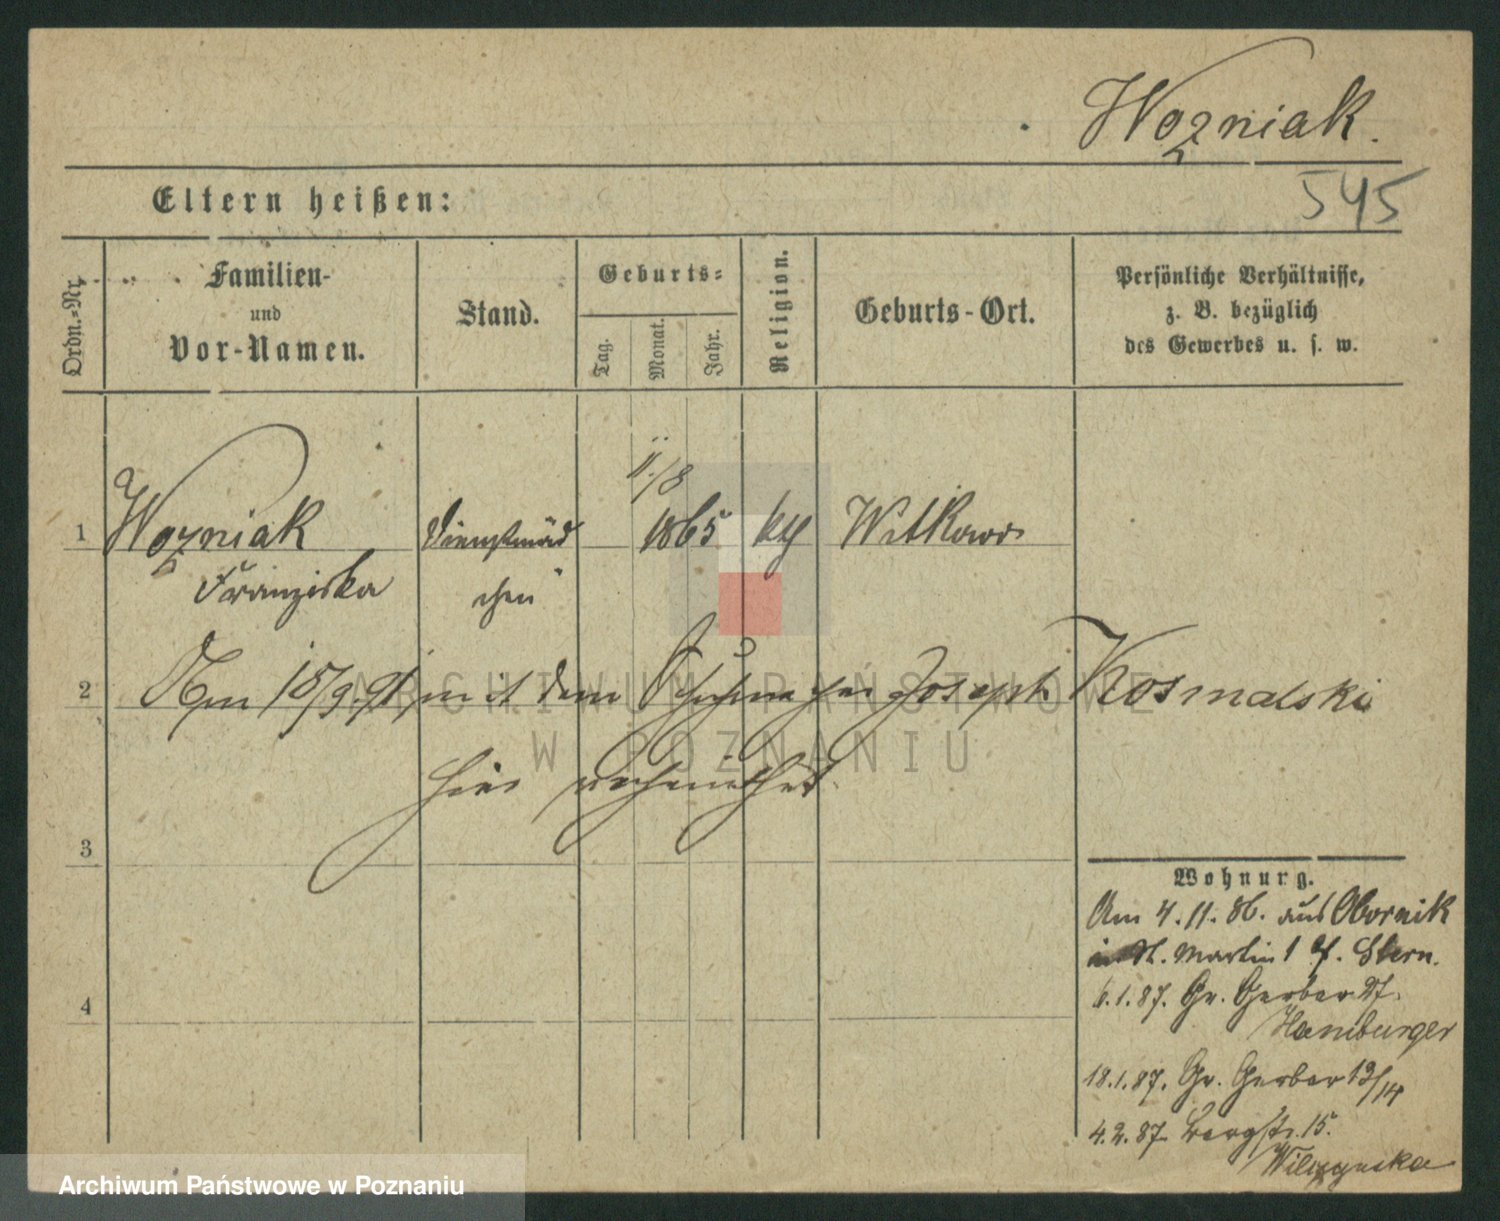 Wozniak.
545
Eltern heißen:
Ordn.-Nr.
Familien-
und
Vor-Namen.
Stand.
Geburts-
Tag.
Monat.
Jahr.
Religion.
Geburts-Ort.
Persönliche Verhältnisse,
z. B. bezüglich
des Gewerbes u. s. w.
11./8
1 Wozniak Dienstmäd 1865 kth Witkowo
Franziska chen
2 Am 15/9.91, mit dem Schuhmacher Joseph Kosmalski
hier verheirathet.
3
4
Wohnung.
Am 4.11.86. aus Obornik
in St. Martin 1 Stern.
6.1.87. Gr. Gerber
Hamburger
18.1.87. Gr. Gerber 13/14
4.2.87. Bergstr. 15.
ARCHIWUM PAŃSTWOWE
W POZNANIU
Archiwum Państwowe w Poznaniu